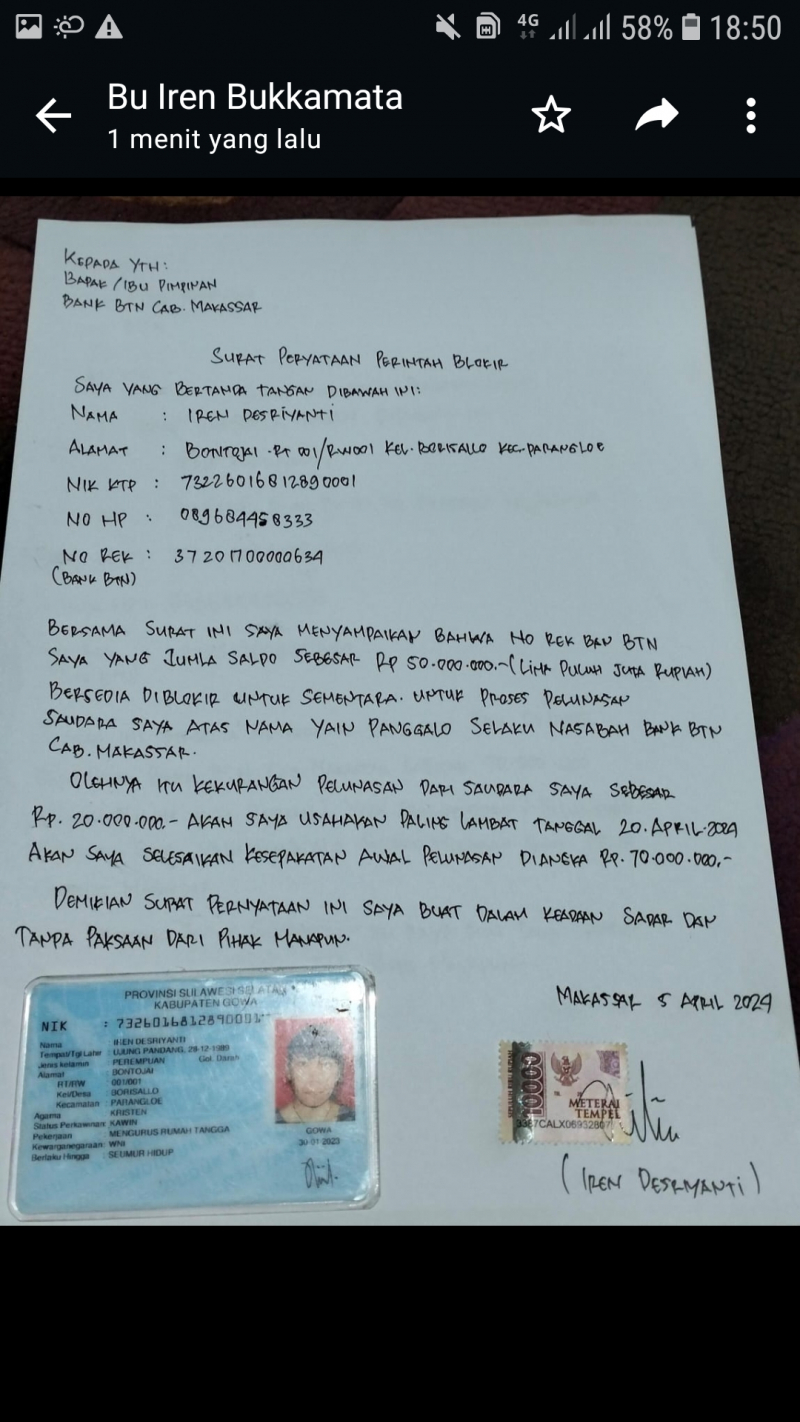 4G 58% 18:50
Bu Iren Bukkamata
1 menit yang lalu
KEPADA YTH:
BAPAK/IBU PIMPINAN
BANK BTN CAB. MAKASSAR
SURAT PERYATAAN PERINTAH BLOKIR
SAYA YANG BERTANDA TANGAN DIBAWAH INI:
NAMA : IREN DESRIYANTI
ALAMAT : BONTOJAI .RT 001/RW001 KEL.BORISALLO KEC.PARANGLOE
NIK KTP : 73226016812890001
NO HP : 089684458333
NO REK : 3720170000634
(BANK BTN)
BERSAMA SURAT INI SAYA MENYAMPAIKAN BAHWA NO REK BAN BTN
SAYA YANG JUMLA SALDO SEBESAR RP 50.000.000.-(LIMA PULUH JUTA RUPIAH)
BERSEDIA DIBLOKIR UNTUK SEMENTARA. UNTUK PROSES PELUNASAN
SAUDARA SAYA ATAS NAMA YAIN PANGGALO SELAKU NASABAH BANK BTN
CAB. MAKASSAR.
OLEHNYA ITU KEKURANGAN PELUNASAN DARI SAUDARA SAYA SEBESAR
RP. 20.000.000.- AKAN SAYA USAHAKAN PALING LAMBAT TANGGAL 20.APRIL.2024
AKAN SAYA SELESAIKAN KESEPAKATAN AWAL PELUNASAN DIANGKA RP. 70.000.000,-
DEMIKIAN SURAT PERNYATAAN INI SAYA BUAT DALAM KEADAAN SADAR DAN
TANPA PAKSAAN DARI PIHAK MANAPUN.
MAKASSAR 5 APRIL 2024
PROVINSI SULAWESI SELATAN
KABUPATEN GOWA
NIK : 7326016812890001
Nama : IREN DESRIYANTI
Tempat/Tgl Lahir : UJUNG PANDANG, 28-12-1989
Jenis kelamin : PEREMPUAN Gol. Darah
Alamat : BONTOJAI
RT/RW : 001/001
Kel/Desa : BORISALLO
Kecamatan : PARANGLOE
Agama : KRISTEN
Status Perkawinan: KAWIN
Pekerjaan : MENGURUS RUMAH TANGGA
Kewarganegaraan: WNI
Berlaku Hingga : SEUMUR HIDUP
GOWA
30-01-2023
10000
METERAI
TEMPEL
(IREN DESRIYANTI)